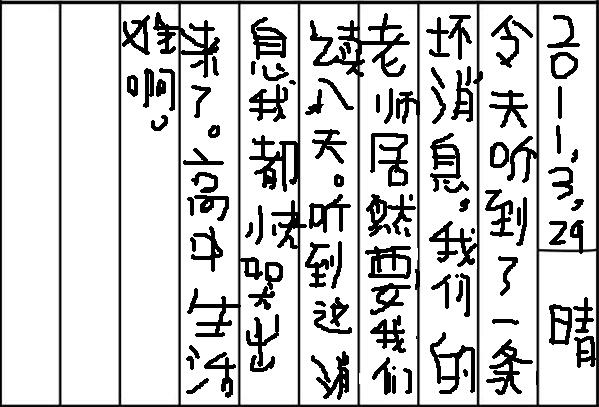 2011,3,29 晴
今天听到了一条
坏消息，我们的
老师居然要我们
续八天。听到这消
息我都快哭出
来了。高中生活
难啊。